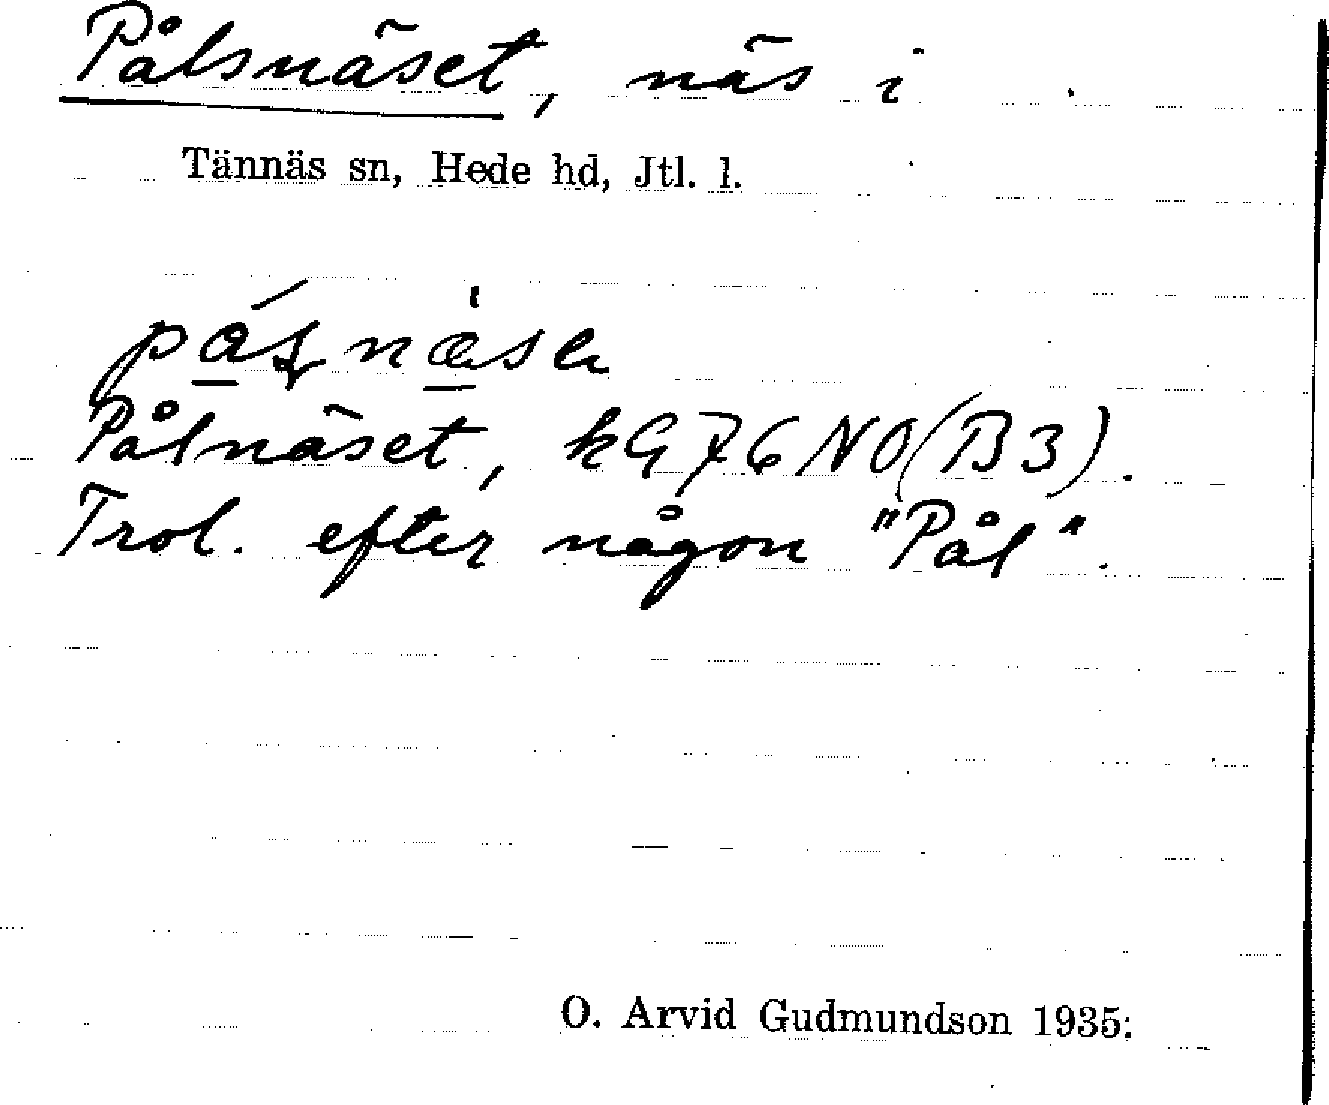 Pålsnäset, näs i
Tännäs sn, Hede hd, Jtl. l.
Pålnäset, kG76NO(B3).
Trol. efter någon "Pål".
O. Arvid Gudmundson 1935: